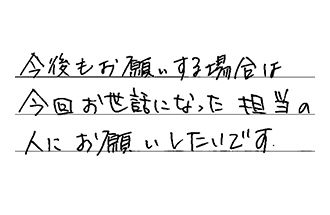 今後もお願いする場合は
今回お世話になった担当の
人にお願いしたいです.